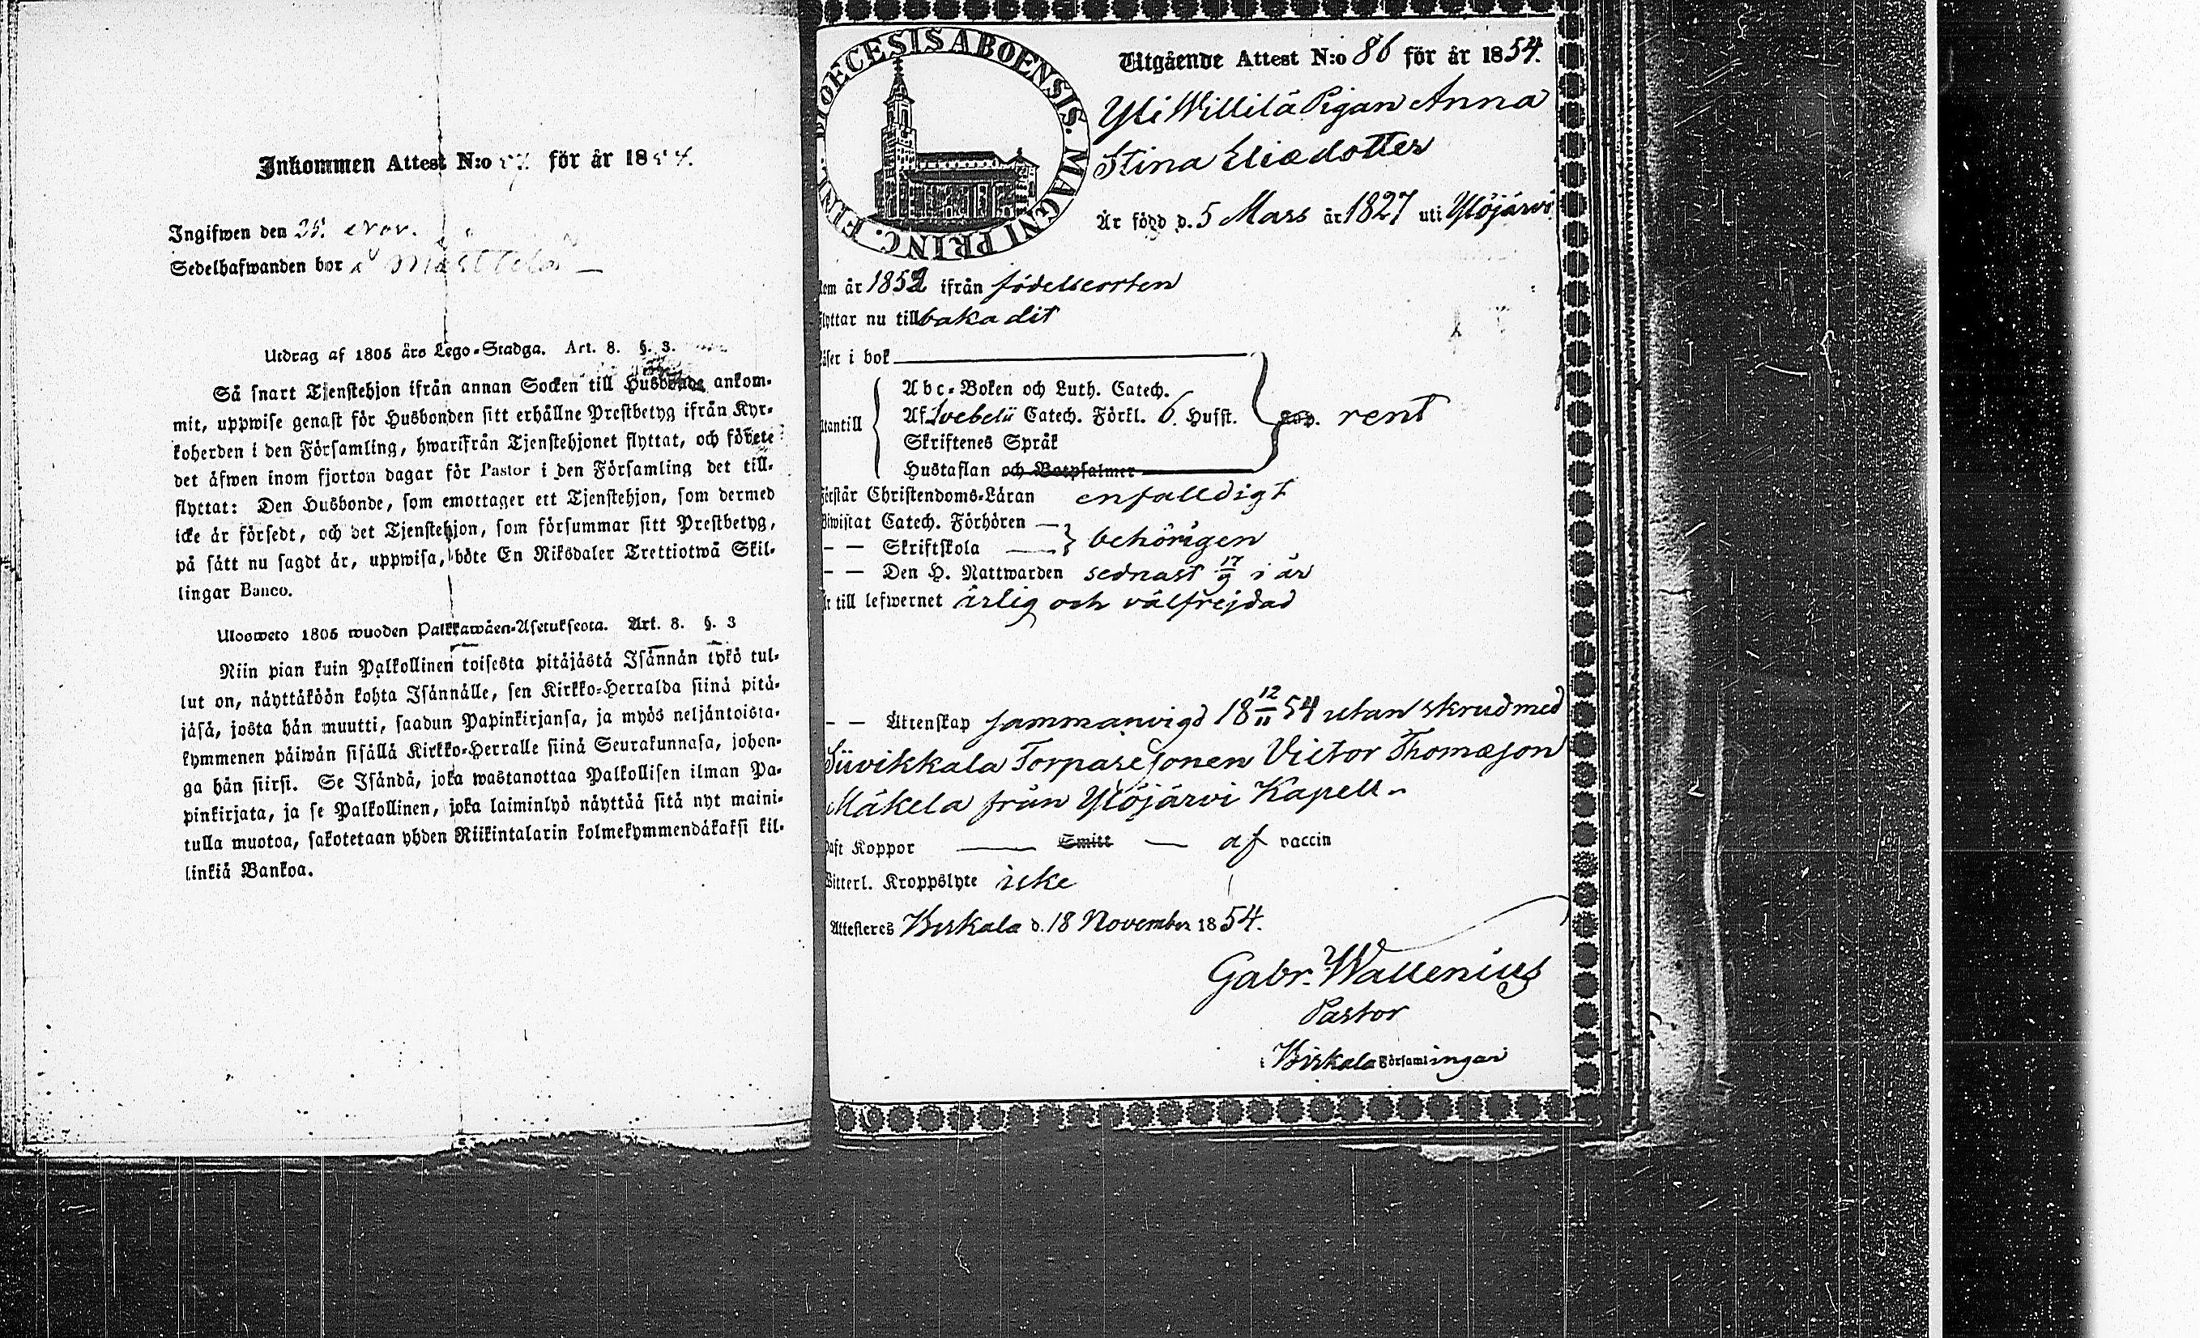 Inkommen Attest N:o 87. för år 1854.
Ingifwen den 25. Nov.
Sedelhafwanden bor i
Utdrag af 1805 års Lego-Stadga. Art. 8. §. 3.
Så snart Tjenstehjon ifrån annan Socken till Husbonde ankom-
mit, uppwise genast för Husbonden sitt erhållne Prestbetyg ifrån Kyr-
koherden i den Församling, hwarifrån Tjenstehjonet flyttat, och förete
det äfwen inom fjorton dagar för Pastor i den Församling det till-
flyttat: Den Husbonde, som emottager ett Tjenstehjon, som dermed
icke är försedt, och det Tjenstehjon, som försummar sitt Prestbetyg,
på sätt nu sagdt är, uppwisa, böte En Riksdaler Trettiotwå Skil-
lingar Banco.
Ulosweto 1805 wuoden Palkkawäen-Asetuksesta. Art. 8. §. 3
Niin pian kuin Palkollinen toisesta pitäjästä Isännän tykö tul-
lut on, näyttäköön kohta Isännälle, sen Kirkko-Herralda siinä pitä-
jäsä, josta hän muutti, saadun Papinkirjansa, ja myös neljäntoista-
kymmenen päiwän sisällä Kirkko-Herralle siinä Seurakunnasa, johon-
ga hän siirsi. Se Isändä, joka wastanottaa Palkollisen ilman Pa-
pinkirjata, ja se Palkollinen, joka laiminlyö näyttää sitä nyt maini-
tulla muotoa, sakotetaan yhden Riikintalarin kolmekymmendäkaksi kil-
linkiä Bankoa.
DIOECESIS ABOENSIS. MAGNI PRINC. FINL.
Utgående Attest N:o 86 för år 1854.
Yli Willilä Pigan Anna
Stina Eliædotter
Är född d. 5 Mars år 1827 uti Ylöjärvi
kom år 1852 ifrån födelseorten
flyttar nu tillbaka dit
läser i bok
Abc-Boken och Luth. Catech.
Af Svebelii Catech. Förkl. 6. Hufst. rent
utantill
Skriftenes Språk
Hustaflan och Botpsalmer
förstår Christendoms-Läran enfalldigt
Biwistat Catech. Förhören
— — Skriftskola behörigen
— — Den H. Nattwarden sednast 17/9 i år
är till lefwernet ärlig och välfrejdad
— — Äktenskap sammanvigd 18 12/11 54 utan skrud med
Siivikkala Torparesonen Victor Thomæson
Mäkelä från Ylöjärvi Kapell
haft Koppor — Smitt — af vaccin
Witterl. Kroppslyte icke
Attesteres Birkala d. 18 November 1854.
Gabr. Wallenius
Pastor
i Birkala Församlingar